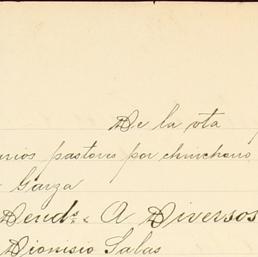 De la vta
arios pastores por chinchorro
Garza
Dends. A Diversos
Dionisio Salas